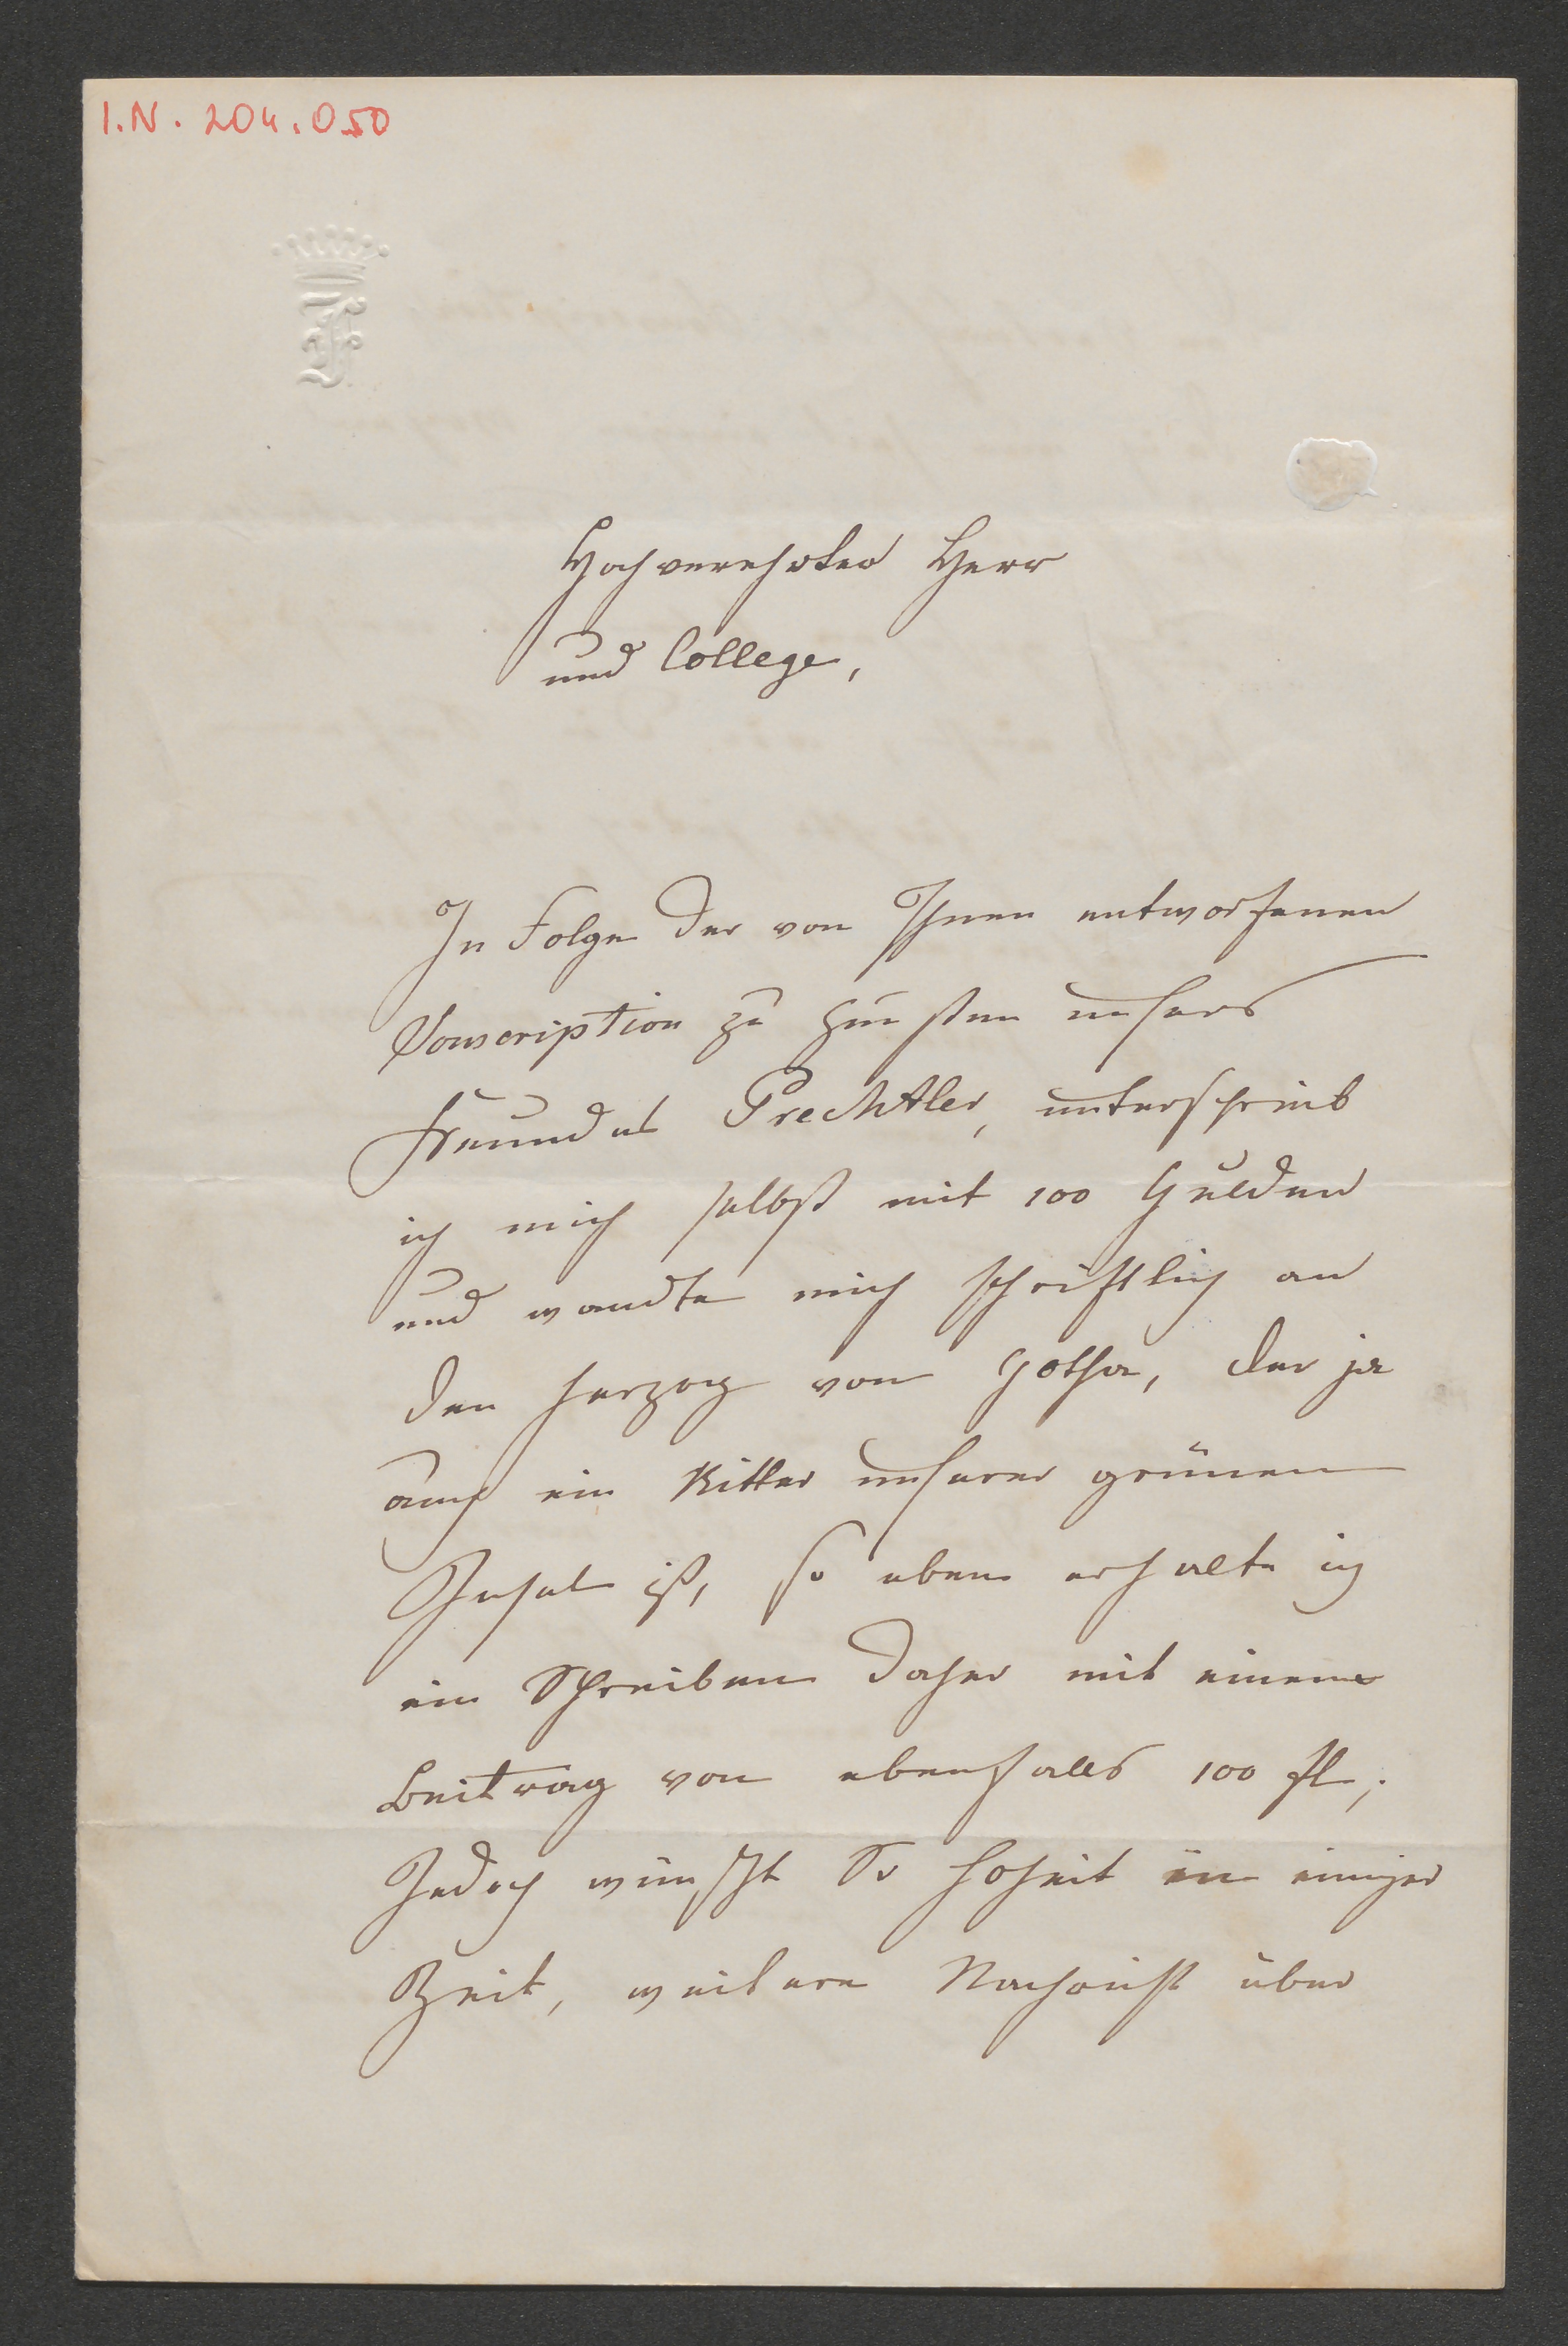 I.N. 204.050
Hochverehrter Herr
und College,
In Folge der von Ihnen entworfenen
Souscription zu Gunsten unsers
Freundes Prechtler, unterschrieb
ich mich selbst mit 100 Gulden
und wandte mich schriftlich an
den Herzog von Gotha, der ja
auch ein Ritter unserer grünen
Insel ist, so eben erhalte ich
ein Schreiben daher mit einem
Beitrag von ebenfalls 100 fl,
Jedoch wünscht Sr Hoheit in einiger
Zeit, weitere Nachricht über